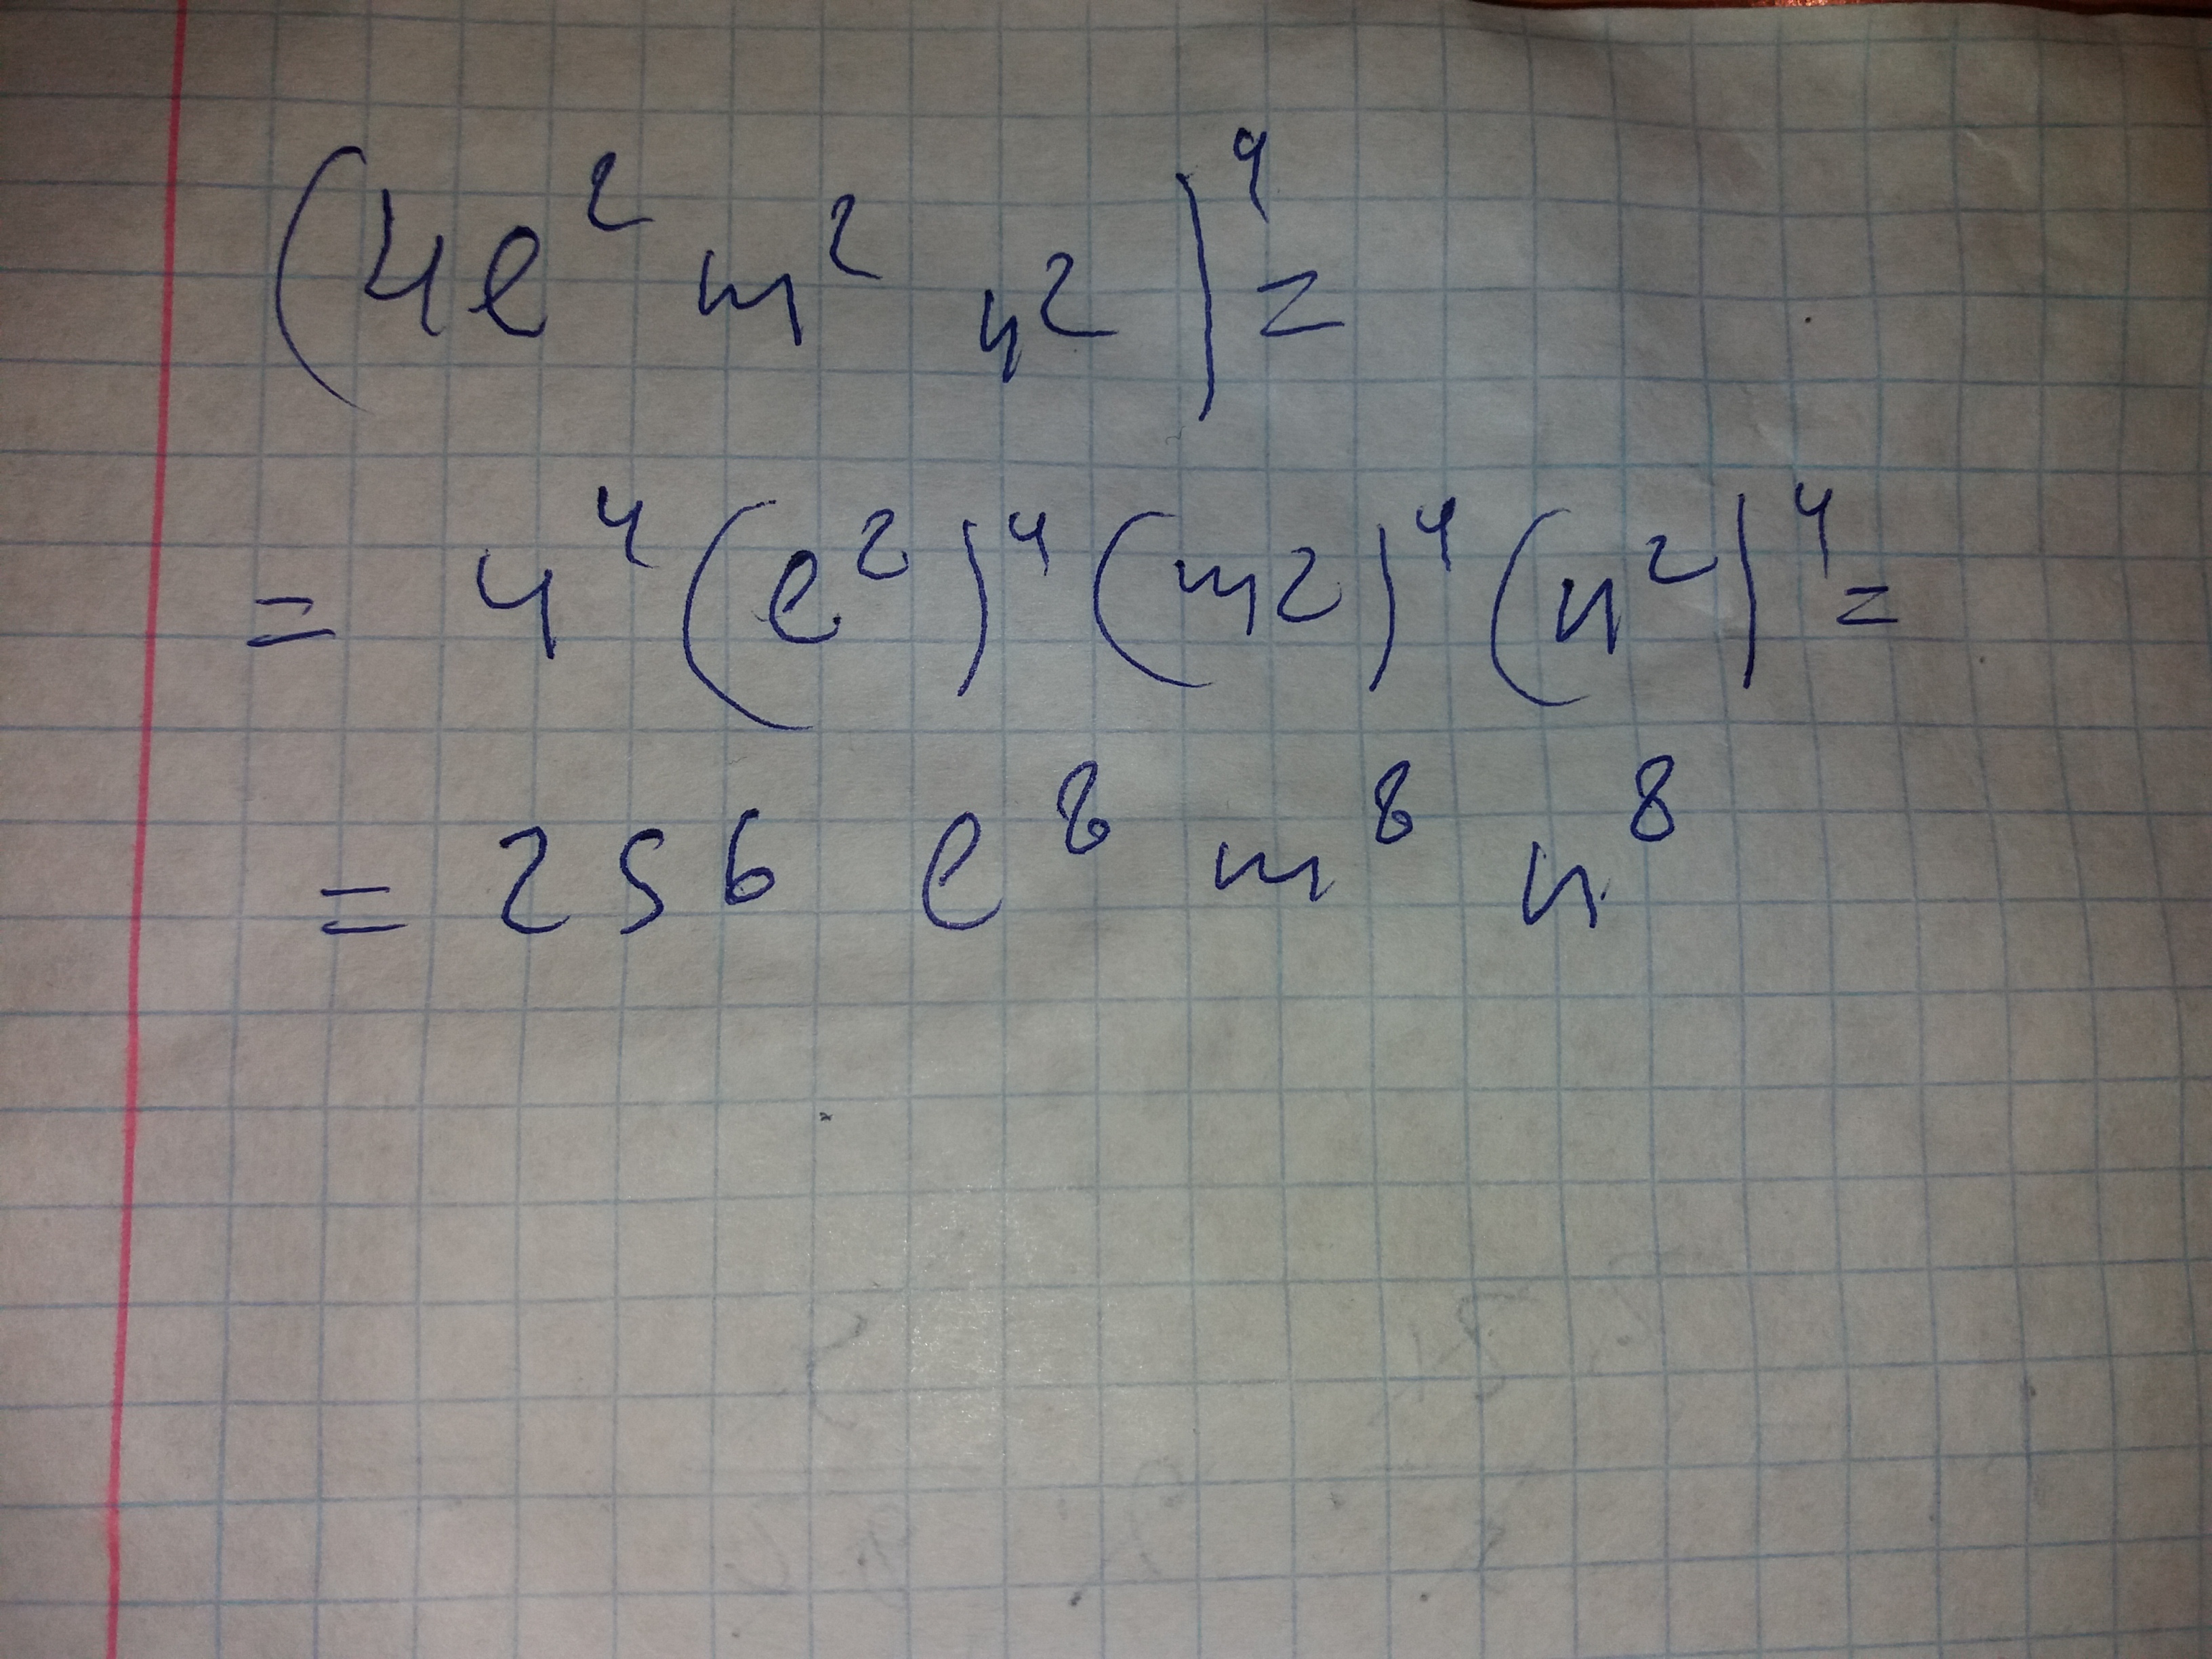 (4e² m² n²)⁴ =
= 4⁴ (e²)⁴ (m2)⁴ (n²)⁴ =
= 256 e⁸ m⁸ n⁸